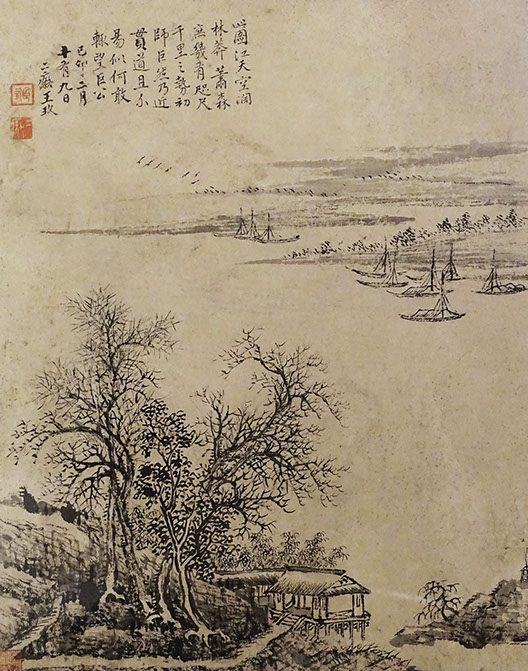 此圖江天空濶
林莽蕭森
庶幾有咫尺
千里之勢初
師巨然乃近
貫道且不
易似何敢
輒望巨公
己卯二月
十有九日
二癡王玖